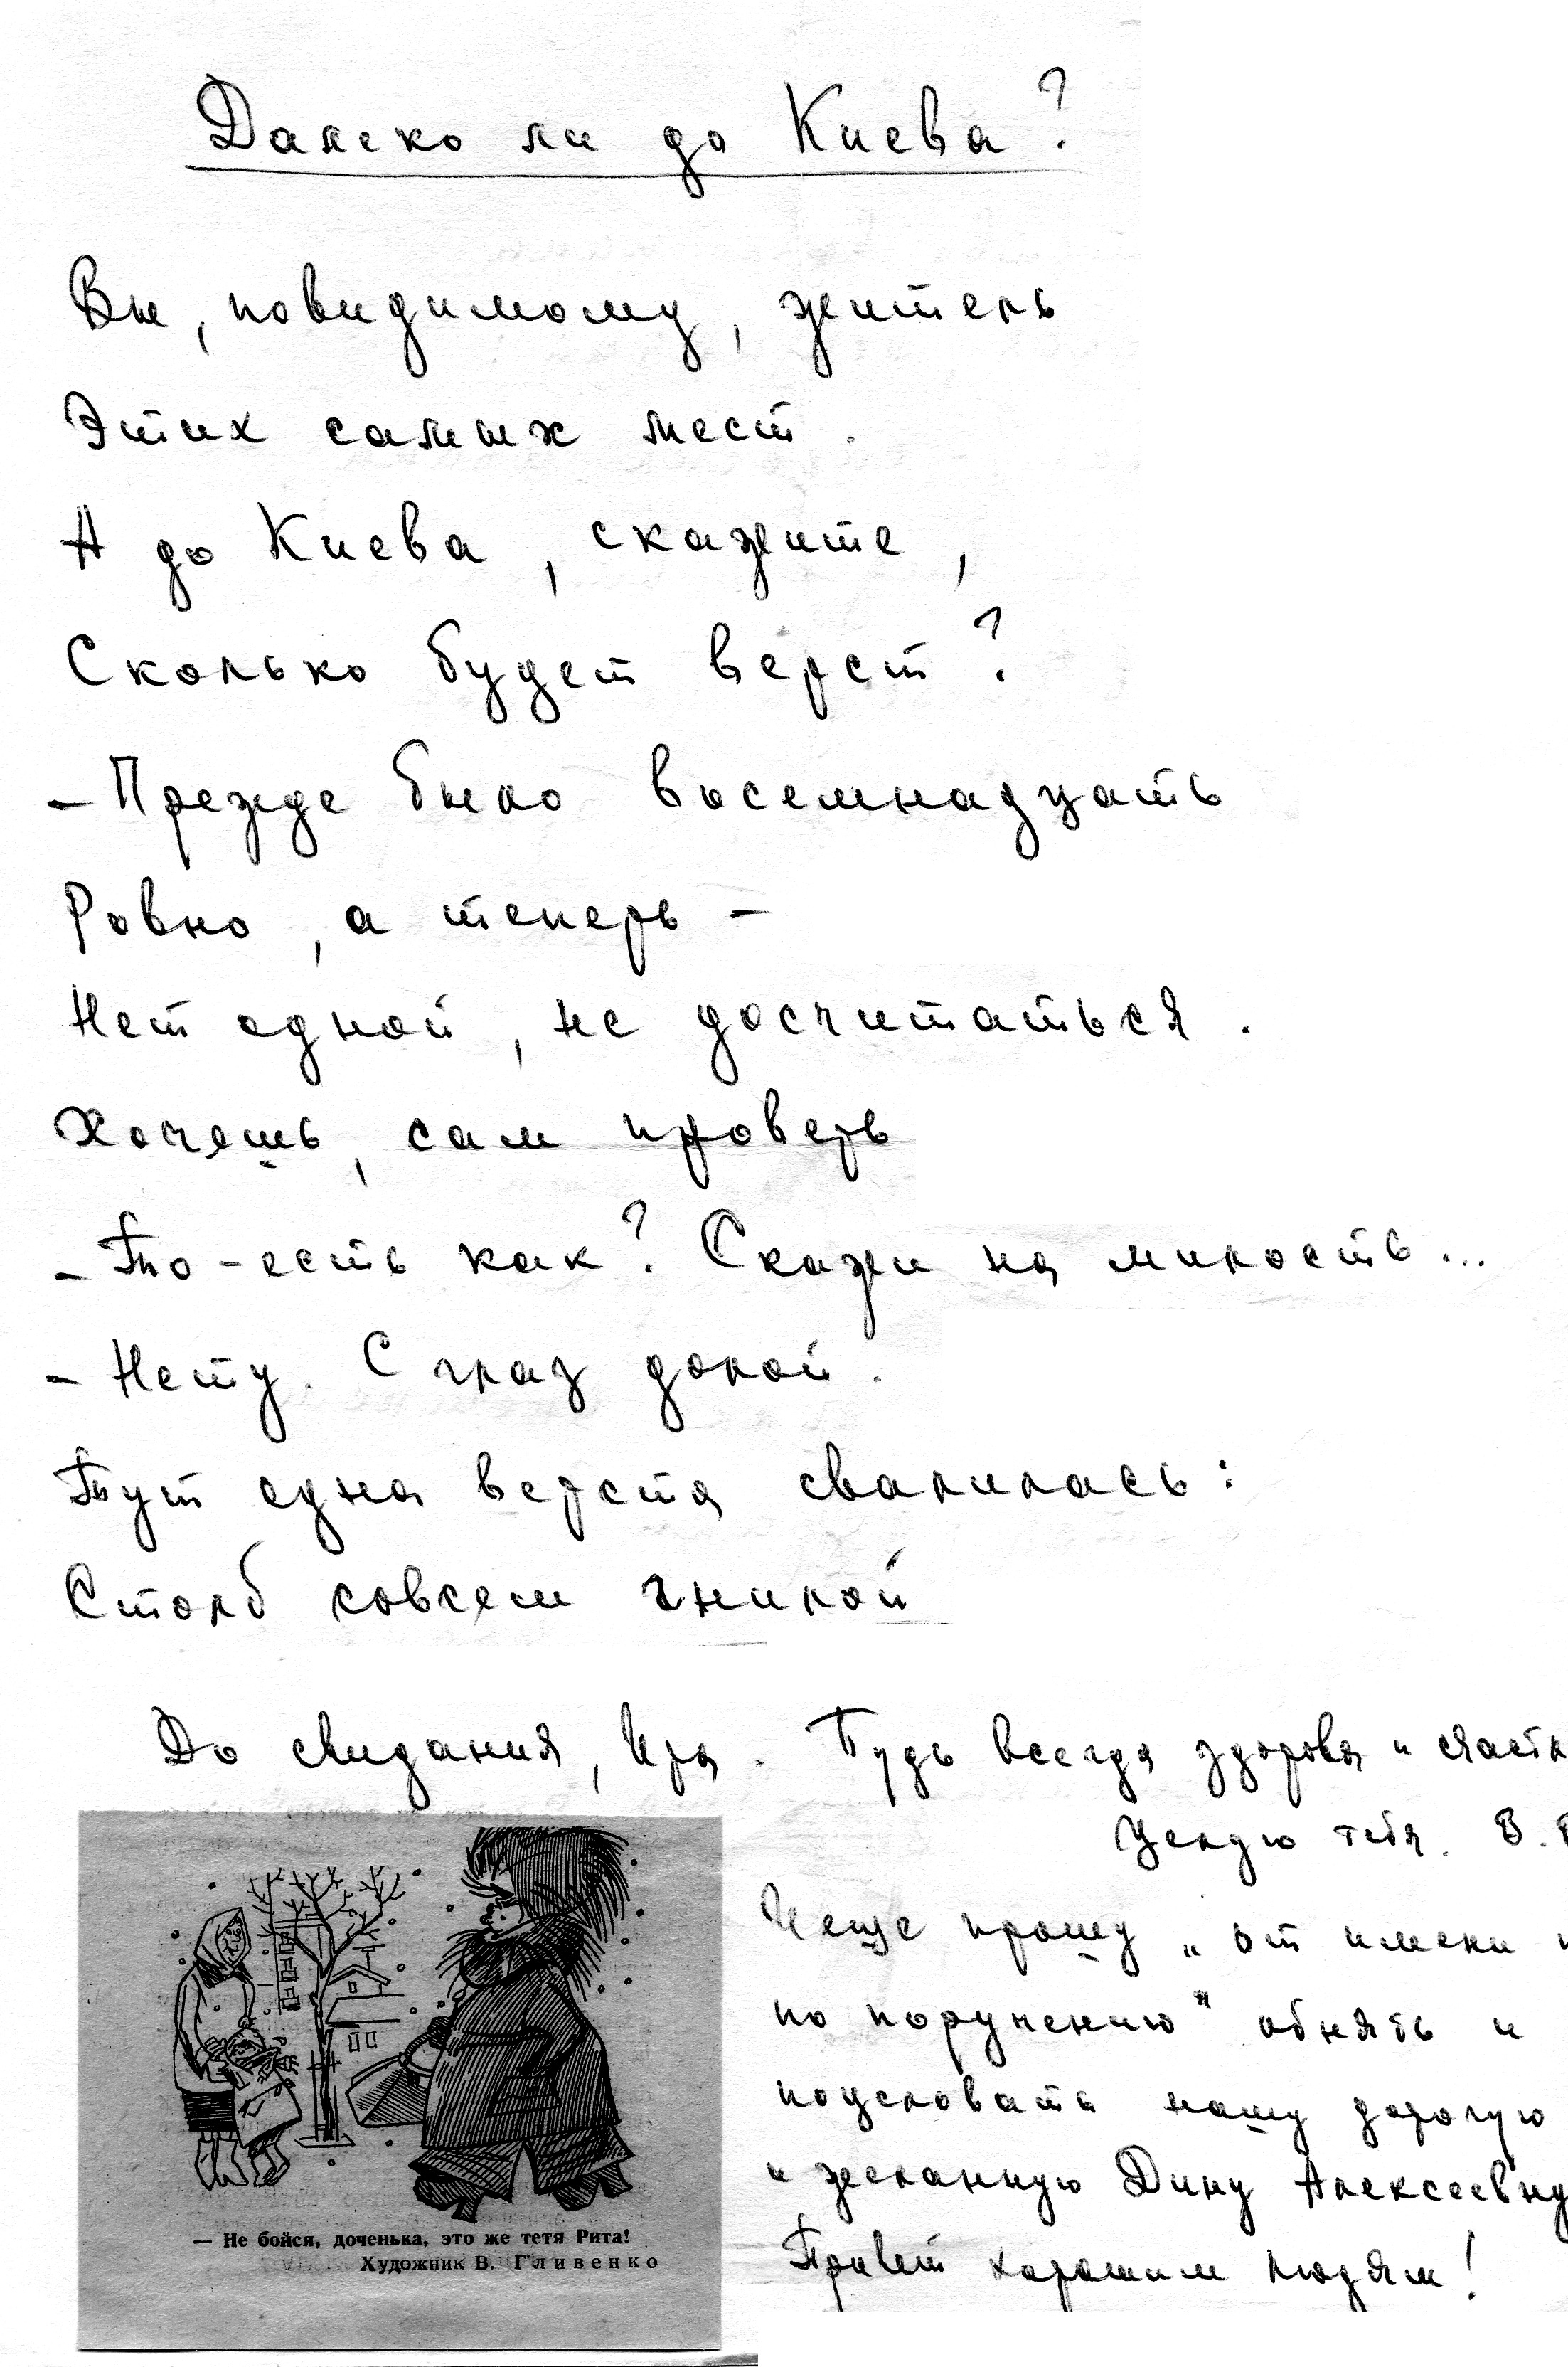 Далеко ли до Киева?
Вы, повидимому, житель
Этих самых мест.
А до Киева, скажите,
Сколько будет верст?
- Прежде было восемнадцать
Ровно, а теперь -
Нет одной, не досчитаться.
Хочешь, сам проверь
- То-есть как? Скажи на милость...
- Нету. С глаз долой.
Тут одна верста свалилась:
Столб совсем гнилой
До свидания, Ира. Будь всегда здорова и счастл
Целую тебя. В.
И еще прошу „от имени и
по поручению" обнять и
поцеловать нашу дорогую
и желанную Дину Алексеевну
Привет хорошим людям!
— Не бойся, доченька, это же тетя Рита!
Художник В. Гливенко